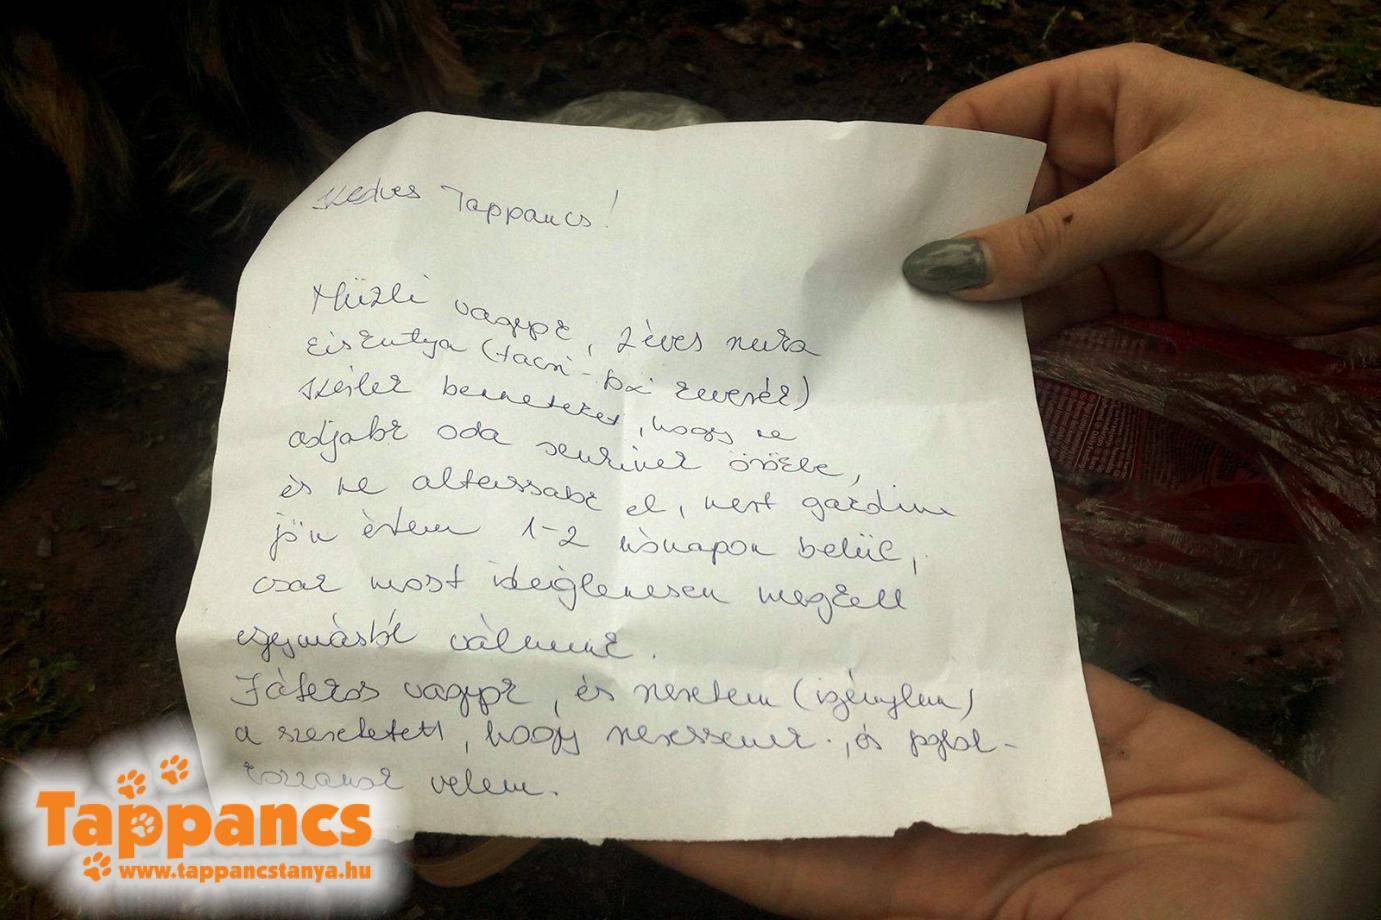 Kedves Tappancs!
Müzli vagyok, 2 éves szuka
kiskutya (tacsi - keverék)
Kérlek benneteket, hogy ne
adjatok oda senkinek örökbe,
és ne altassatok el, mert gazdim
jön értem 1-2 hónapon belül,
csak most ideiglenesen meg kell
egymástól válnunk.
Játékos vagyok, és szeretem (igénylem)
a szeretetet, hogy szeressenek, és foglal-
kozzanak velem.
Tappancs
www.tappancstanya.hu